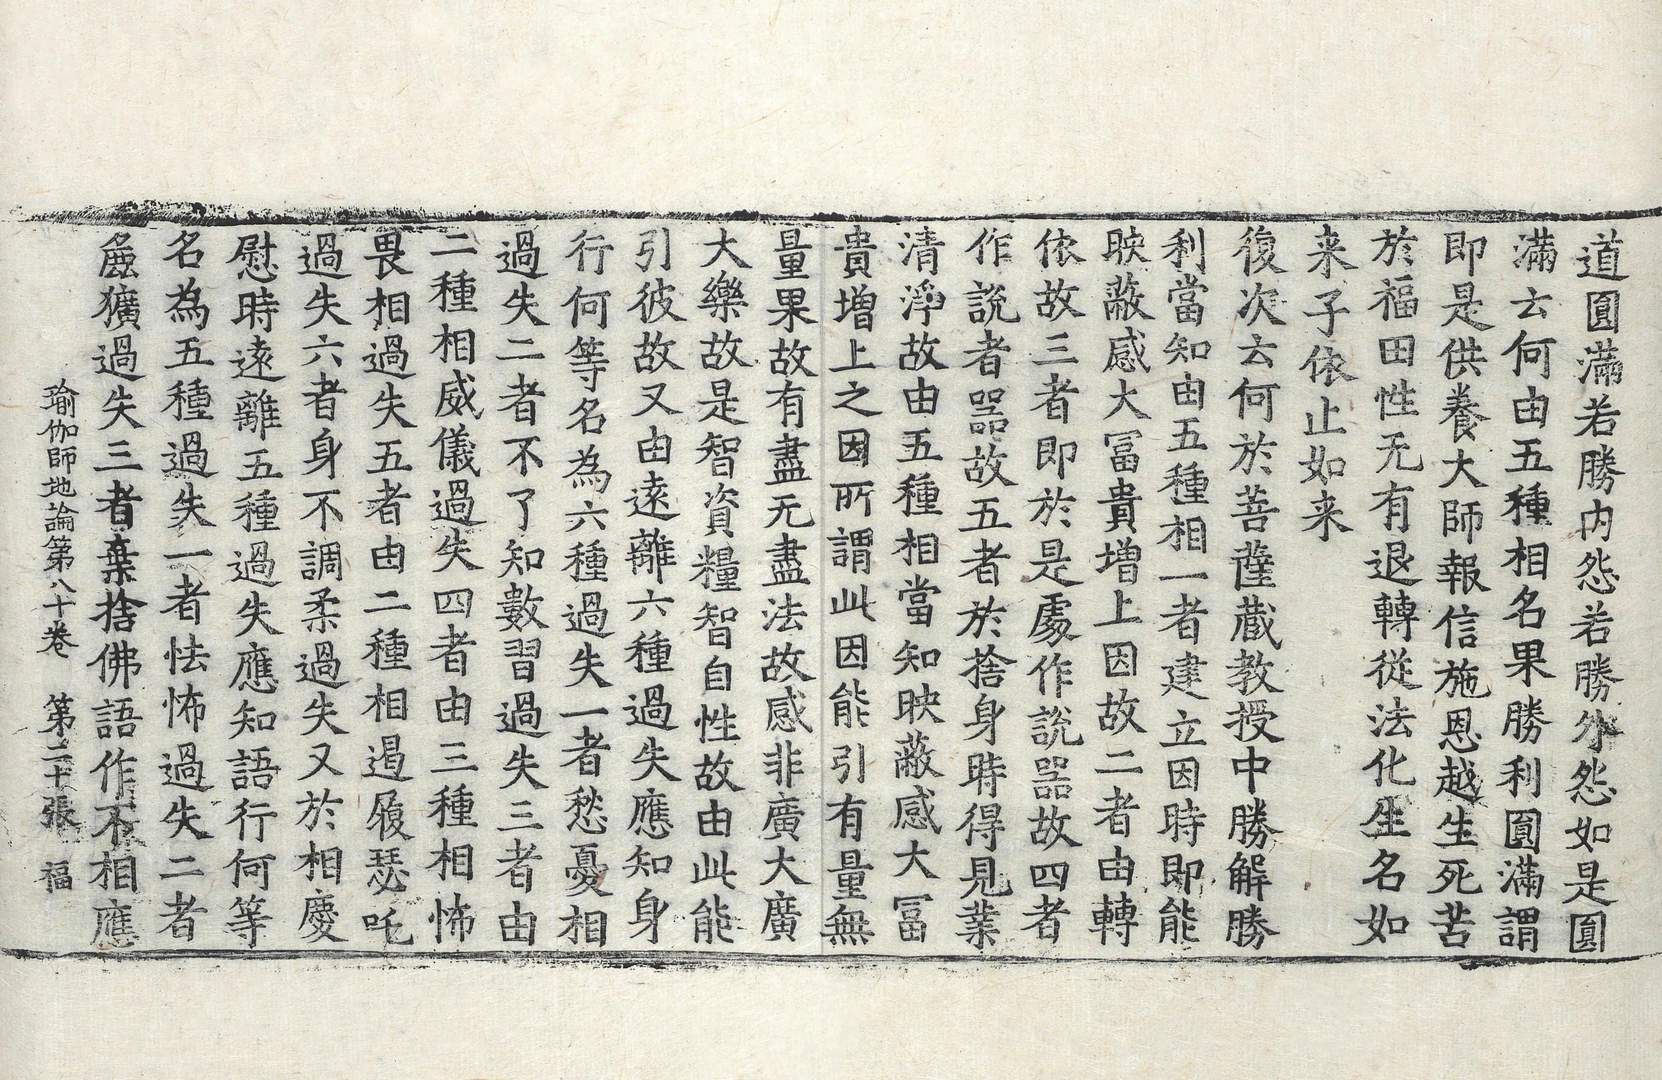 道圓滿若勝內怨若勝外怨如是圓
滿云何由五種相名果勝利圓滿謂
即是供養大師報信施恩越生死苦
於福田性无有退轉從法化生名如
来子依止如来
復次云何於菩薩藏教授中勝解勝
利當知由五種相一者建立因時即能
映蔽感大冨貴增上因故二者由轉
依故三者即於是處作說器故四者
作說者器故五者於捨身時得見業
清淨故由五種相當知映蔽感大冨
貴增上之因所謂此因能引有量無
量果故有盡无盡法故感非廣大廣
大樂故是智資糧智自性故由此能
引彼故又由遠離六種過失應知身
行何等名為六種過失一者愁憂相
過失二者不了知數習過失三者由
二種相威儀過失四者由三種相怖
畏相過失五者由二種相過履瑟吒
過失六者身不調柔過失又於相慶
慰時遠離五種過失應知語行何等
名為五種過失一者怯怖過失二者
麁獷過失三者棄捨佛語作不相應
瑜伽師地論第八十卷 第二十張 福